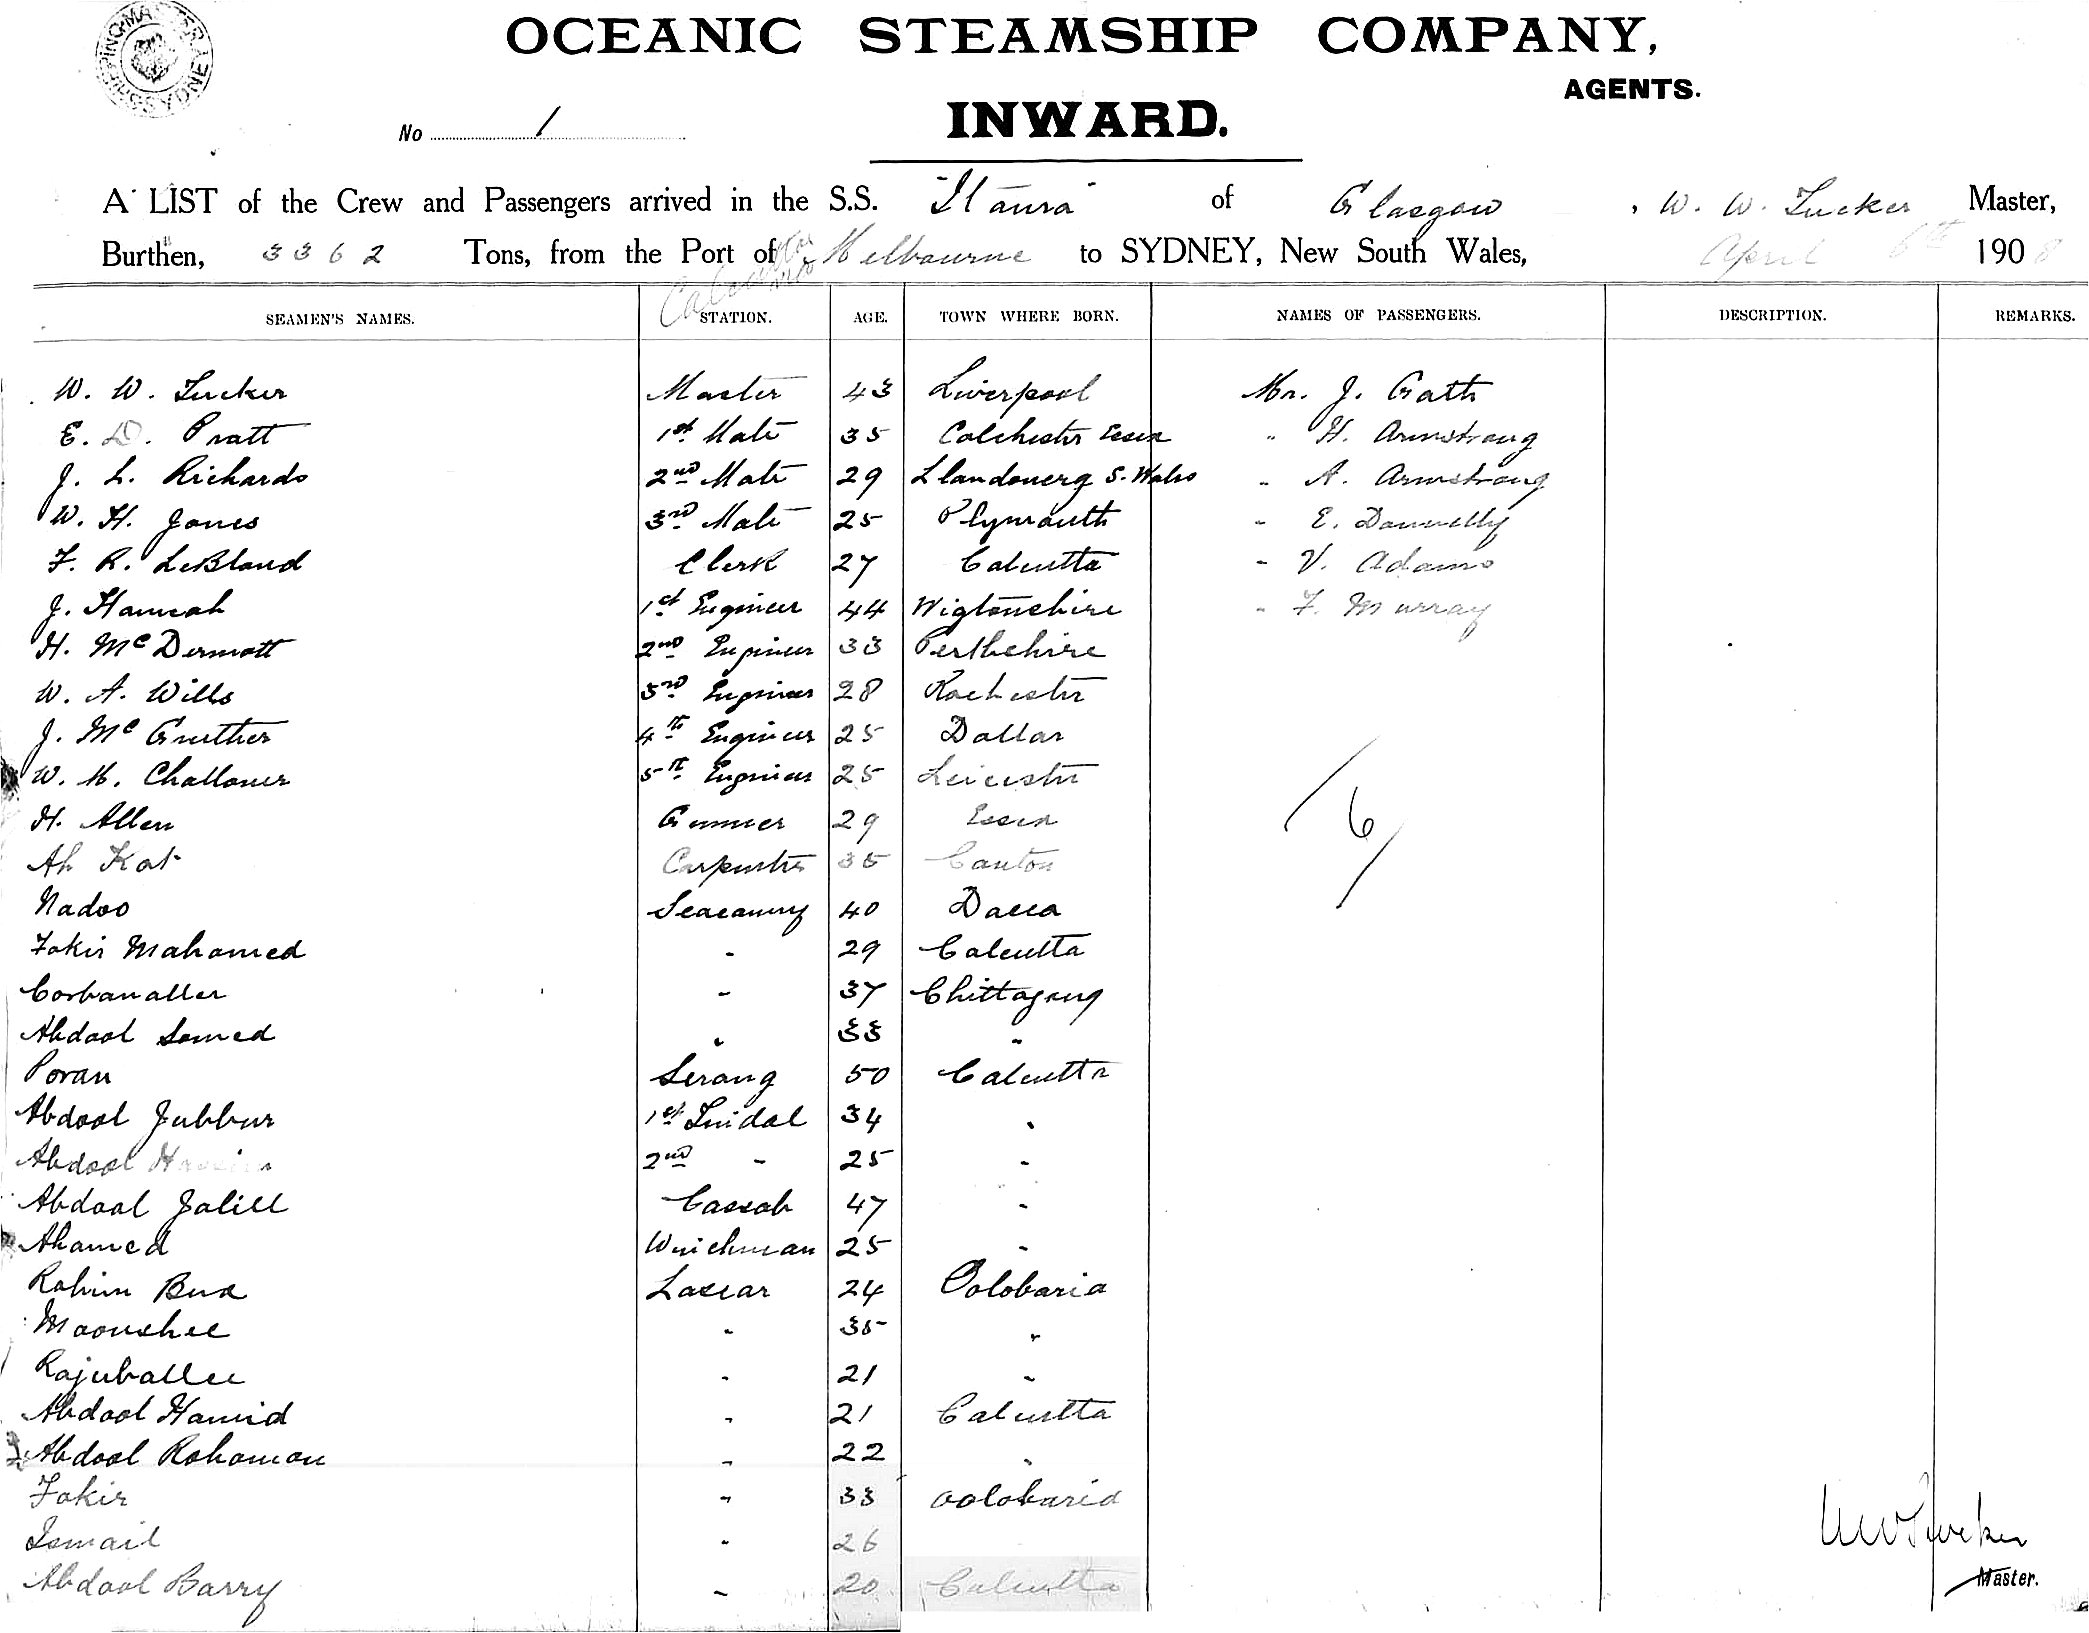 SHIPPING MASTER SYDNEY
OCEANIC STEAMSHIP COMPANY,
AGENTS.
INWARD.
No 1
A LIST of the Crew and Passengers arrived in the S.S. "Itaura" of Glasgow, W. W. Tucker Master,
Burthen, 3362 Tons, from the Port of Calcutta Melbourne to SYDNEY, New South Wales, April 6th 1908
SEAMEN'S NAMES. STATION. AGE. TOWN WHERE BORN. NAMES OF PASSENGERS. DESCRIPTION. REMARKS.
W. W. Tucker Master 43 Liverpool Mr. J. Gath
E. D. Pratt 1st Mate 35 Colchester Essex " H. Armstrong
J. L. Richards 2nd Mate 29 Llandouerg S. Wales " A. Armstrong
W. H. Jones 3rd Mate 25 Plymouth " E. Donnelly
F. R. LeBlond Clerk 27 Calcutta " V. Adams
J. Hannah 1st Engineer 44 Wigtonshire " F. Murray
H. McDermott 2nd Engineer 33 Perthshire
W. A. Wills 3rd Engineer 28 Rochester
J. McGruther 4th Engineer 25 Dollar
W. H. Challoner 5th Engineer 25 Leicester
H. Allen Gunner 29 Essex
Ah Kat Carpenter 35 Canton
/ 6 /
Nadoo Seacunny 40 Dacca
Fakir Mahomed " 29 Calcutta
Corbanallee " 37 Chittagong
Abdool Somed " 33 "
Poran Serang 50 Calcutta
Abdool Jubbur 1st Tindal 34 "
Abdool 2nd " 25 "
Abdool Jalill Cassab 47 "
Ahamed Winchman 25 "
Rohim Bux Lascar 24 Oolobaria
Moonshee " 35 "
Rajuballee " 21 "
Abdool Hamid " 21 Calcutta
Abdool Rohoman " 22 "
Fakir " 33 Oolobaria
Ismail " 26
Abdool Barry " 20 Calcutta
W W Tucker
Master.